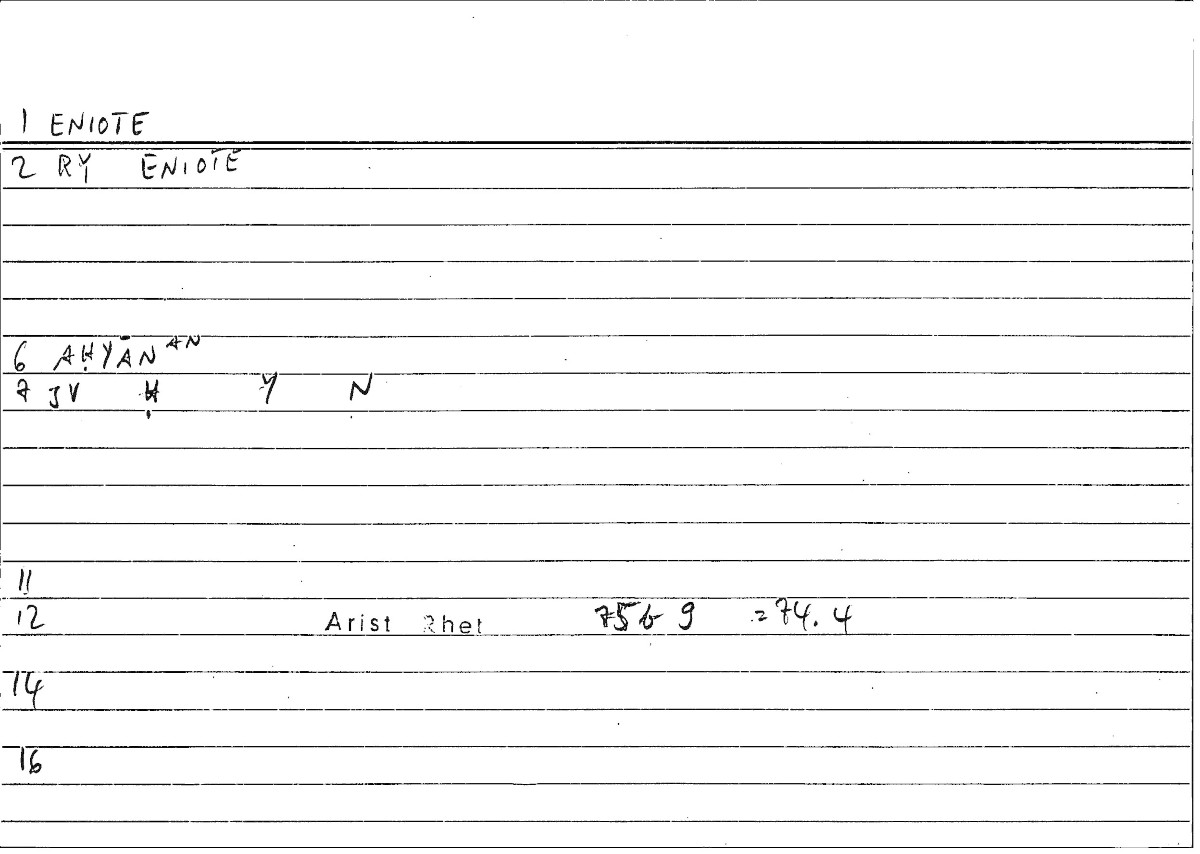 1 ENIOTE
2 RY ENIOTE
6 AḤYĀNAN
7 JV Ḥ Y N
11
12 Arist Rhet 75b 9 =74.4
14
16